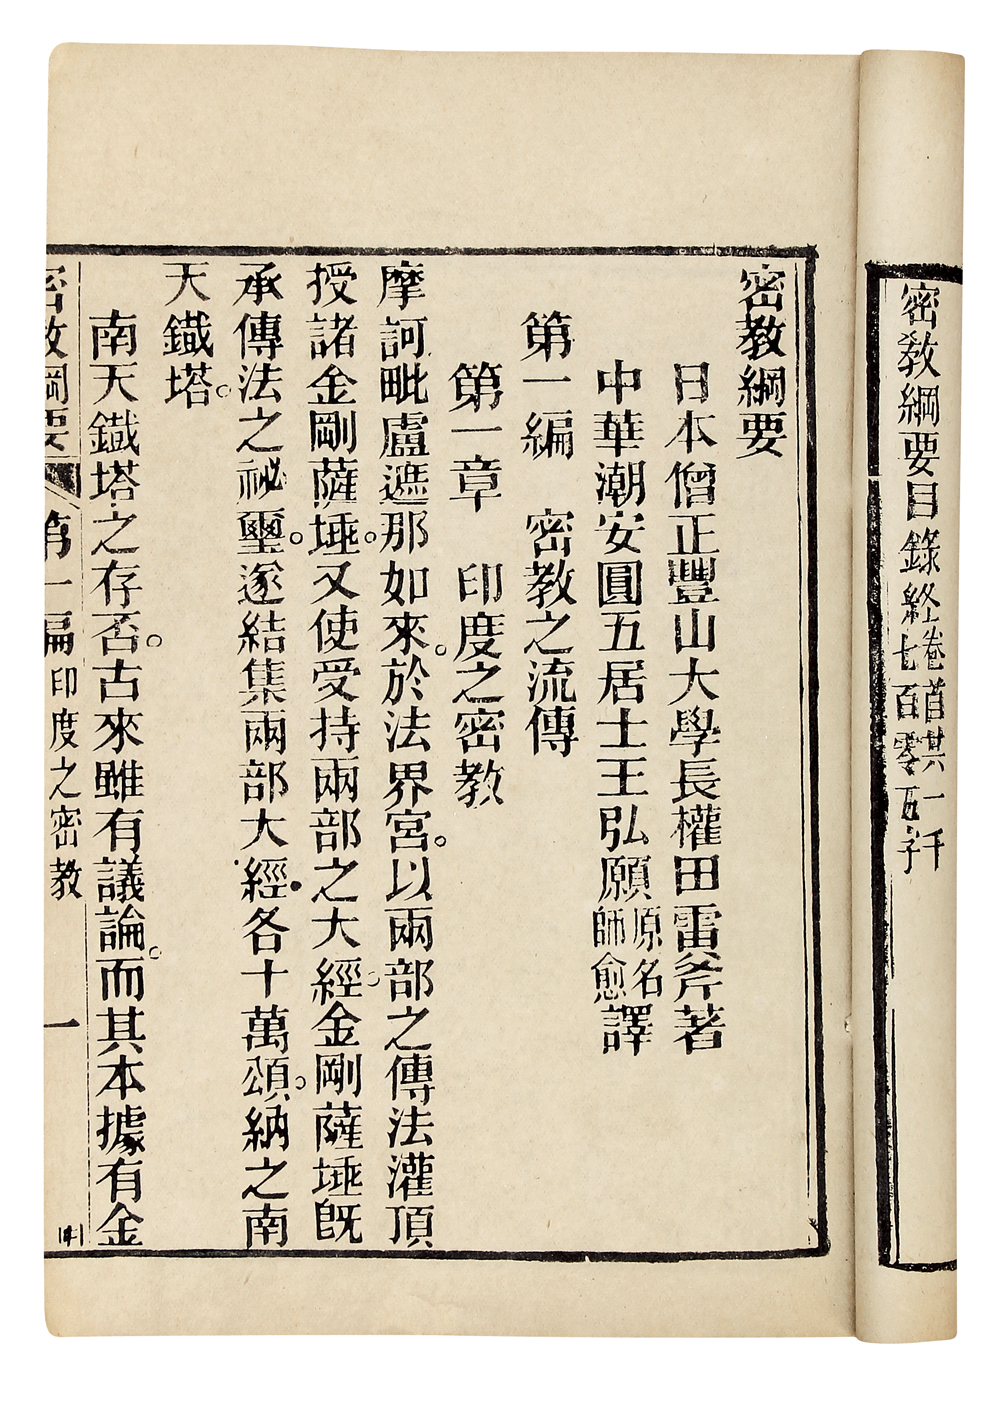 密教綱要目錄終
卷首共一千
七百零五字
密教綱要
日本僧正豐山大學長權田雷斧著
中華潮安圓五居士王弘願原名師愈譯
第一編　密教之流傳
第一章　印度之密教
摩訶毗盧遮那如來。於法界宮。以兩部之傳法灌頂
授諸金剛薩埵。又使受持兩部之大經。金剛薩埵旣
承傳法之祕璽。遂結集兩部大經。各十萬頌。納之南
天鐵塔。
南天鐵塔之存否。古來雖有議論。而其本據有金
密教綱要　第一編　印度之密教　一